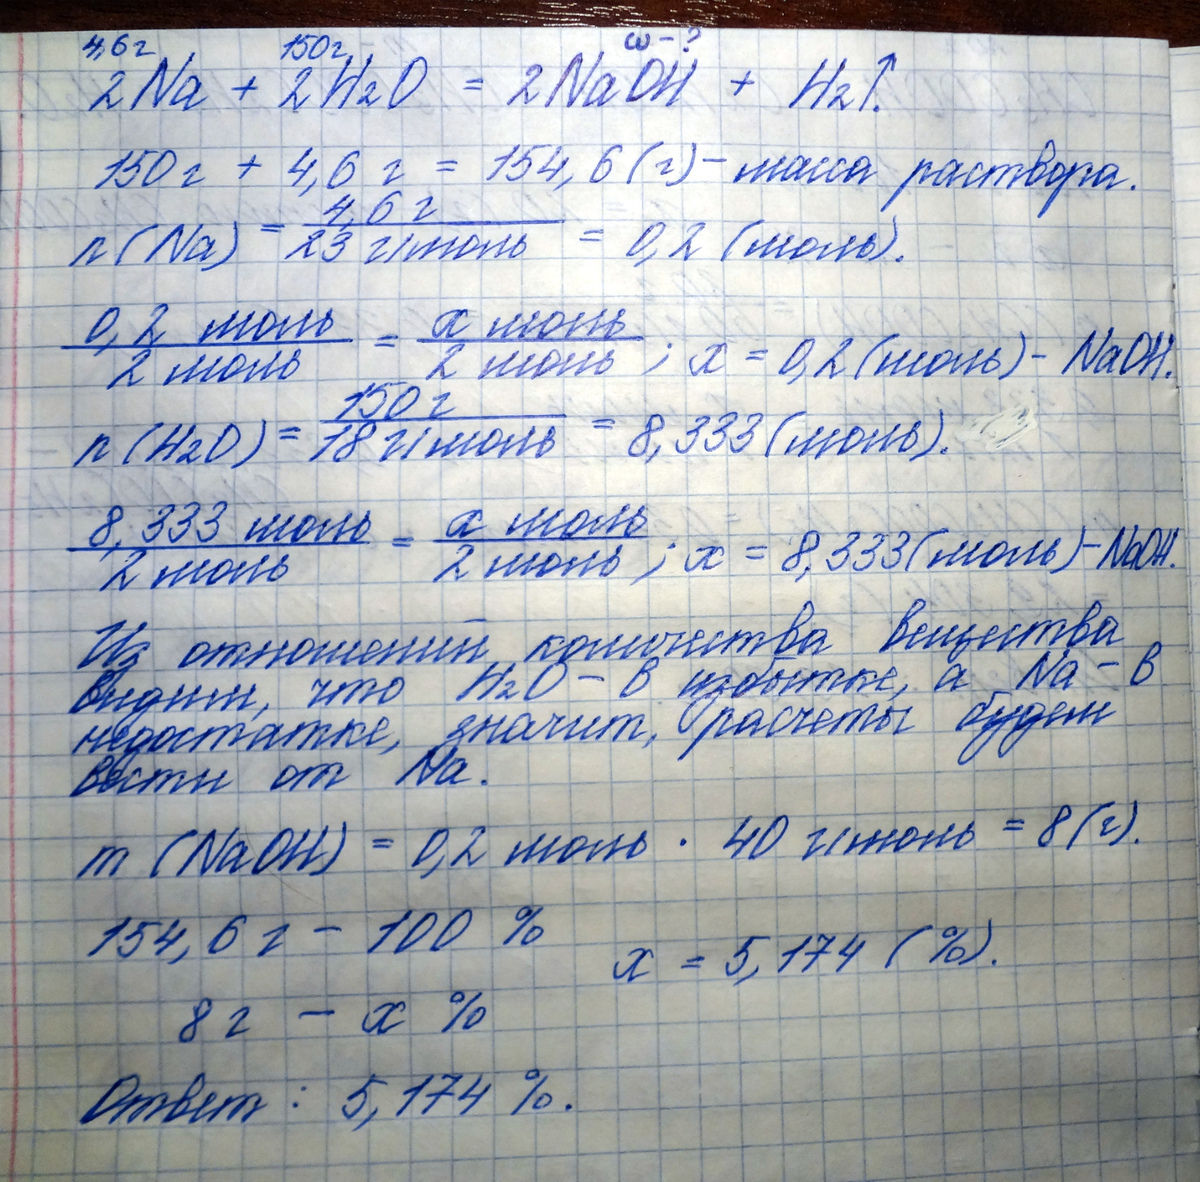 4,6 г 150 г ω - ?
2Na + 2H₂O = 2NaOH + H₂↑.
150 г + 4,6 г = 154,6 (г) - масса раствора.
n (Na) = 4,6 г / 23 г/моль = 0,2 (моль).
0,2 моль / 2 моль = x моль / 2 моль ; x = 0,2 (моль) - NaOH.
n (H₂O) = 150 г / 18 г/моль = 8,333 (моль).
8,333 моль / 2 моль = x моль / 2 моль ; x = 8,333 (моль) - NaOH.
Из отношений количества вещества
видим, что H₂O - в избытке, а Na - в
недостатке, значит, расчеты будем
вести от Na.
m (NaOH) = 0,2 моль · 40 г/моль = 8 (г).
154,6 г - 100 %
x = 5,174 (%).
8 г - x %
Ответ : 5,174 %.